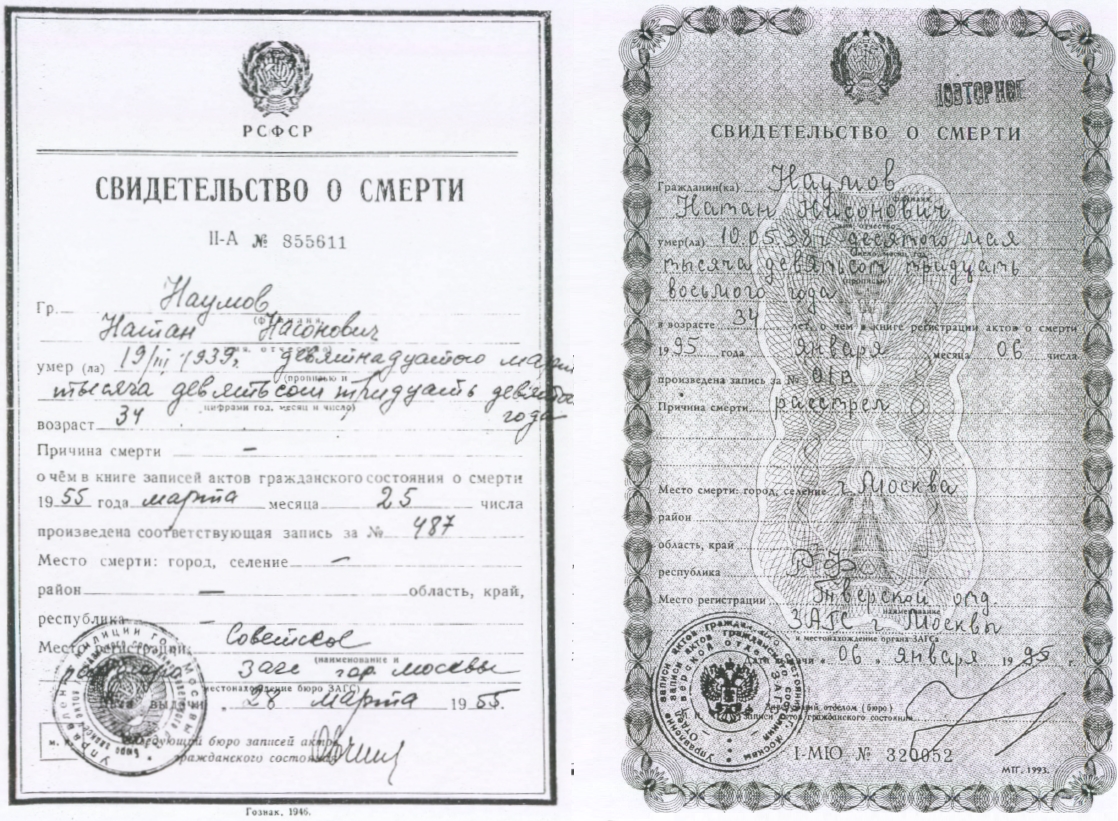 РСФСР
СВИДЕТЕЛЬСТВО О СМЕРТИ
II-А № 855611
Гр. Наумов
(фамилия,
Натан Насонович
имя, отчество)
умер (ла) 19/III 1939г. девятнадцатого марта
(прописью и
тысяча девятьсот тридцать девятого
цифрами год, месяц и число)
года
возраст 34
Причина смерти —
о чём в книге записей актов гражданского состояния о смерти
1955 года марта месяца 25 числа
произведена соответствующая запись за № 487
Место смерти: город, селение —
район — область, край,
республика —
Место регистрации: Советское
(наименование и
Загс гор Москвы
местонахождение бюро ЗАГС)
Дата выдачи „28 марта 1955г.
м. п.
Заведующий бюро записей актов
гражданского состояния
Гознак, 1946.
ПОВТОРНОЕ
СВИДЕТЕЛЬСТВО О СМЕРТИ
Гражданин(ка) Наумов
фамилия
Натан Нисонович
имя, отчество
умер(ла) 10.05.38г десятого мая
число, месяц, год
тысяча девятьсот тридцать
(прописью)
восьмого года
в возрасте 34 лет, о чем в книге регистрации актов о смерти
1995 года января месяца 06 числа
произведена запись за № 01в
Причина смерти расстрел
Место смерти: город, селение г. Москва
район
область, край
республика РФ
Место регистрации Тверской отд.
наименование
ЗАГС г. Москвы
и местонахождение органа ЗАГСа
Дата выдачи « 06 » января 1995 г.
Заведующий отделом (бюро)
записи актов гражданского состояния
I-МЮ № 320052
МТГ. 1993.